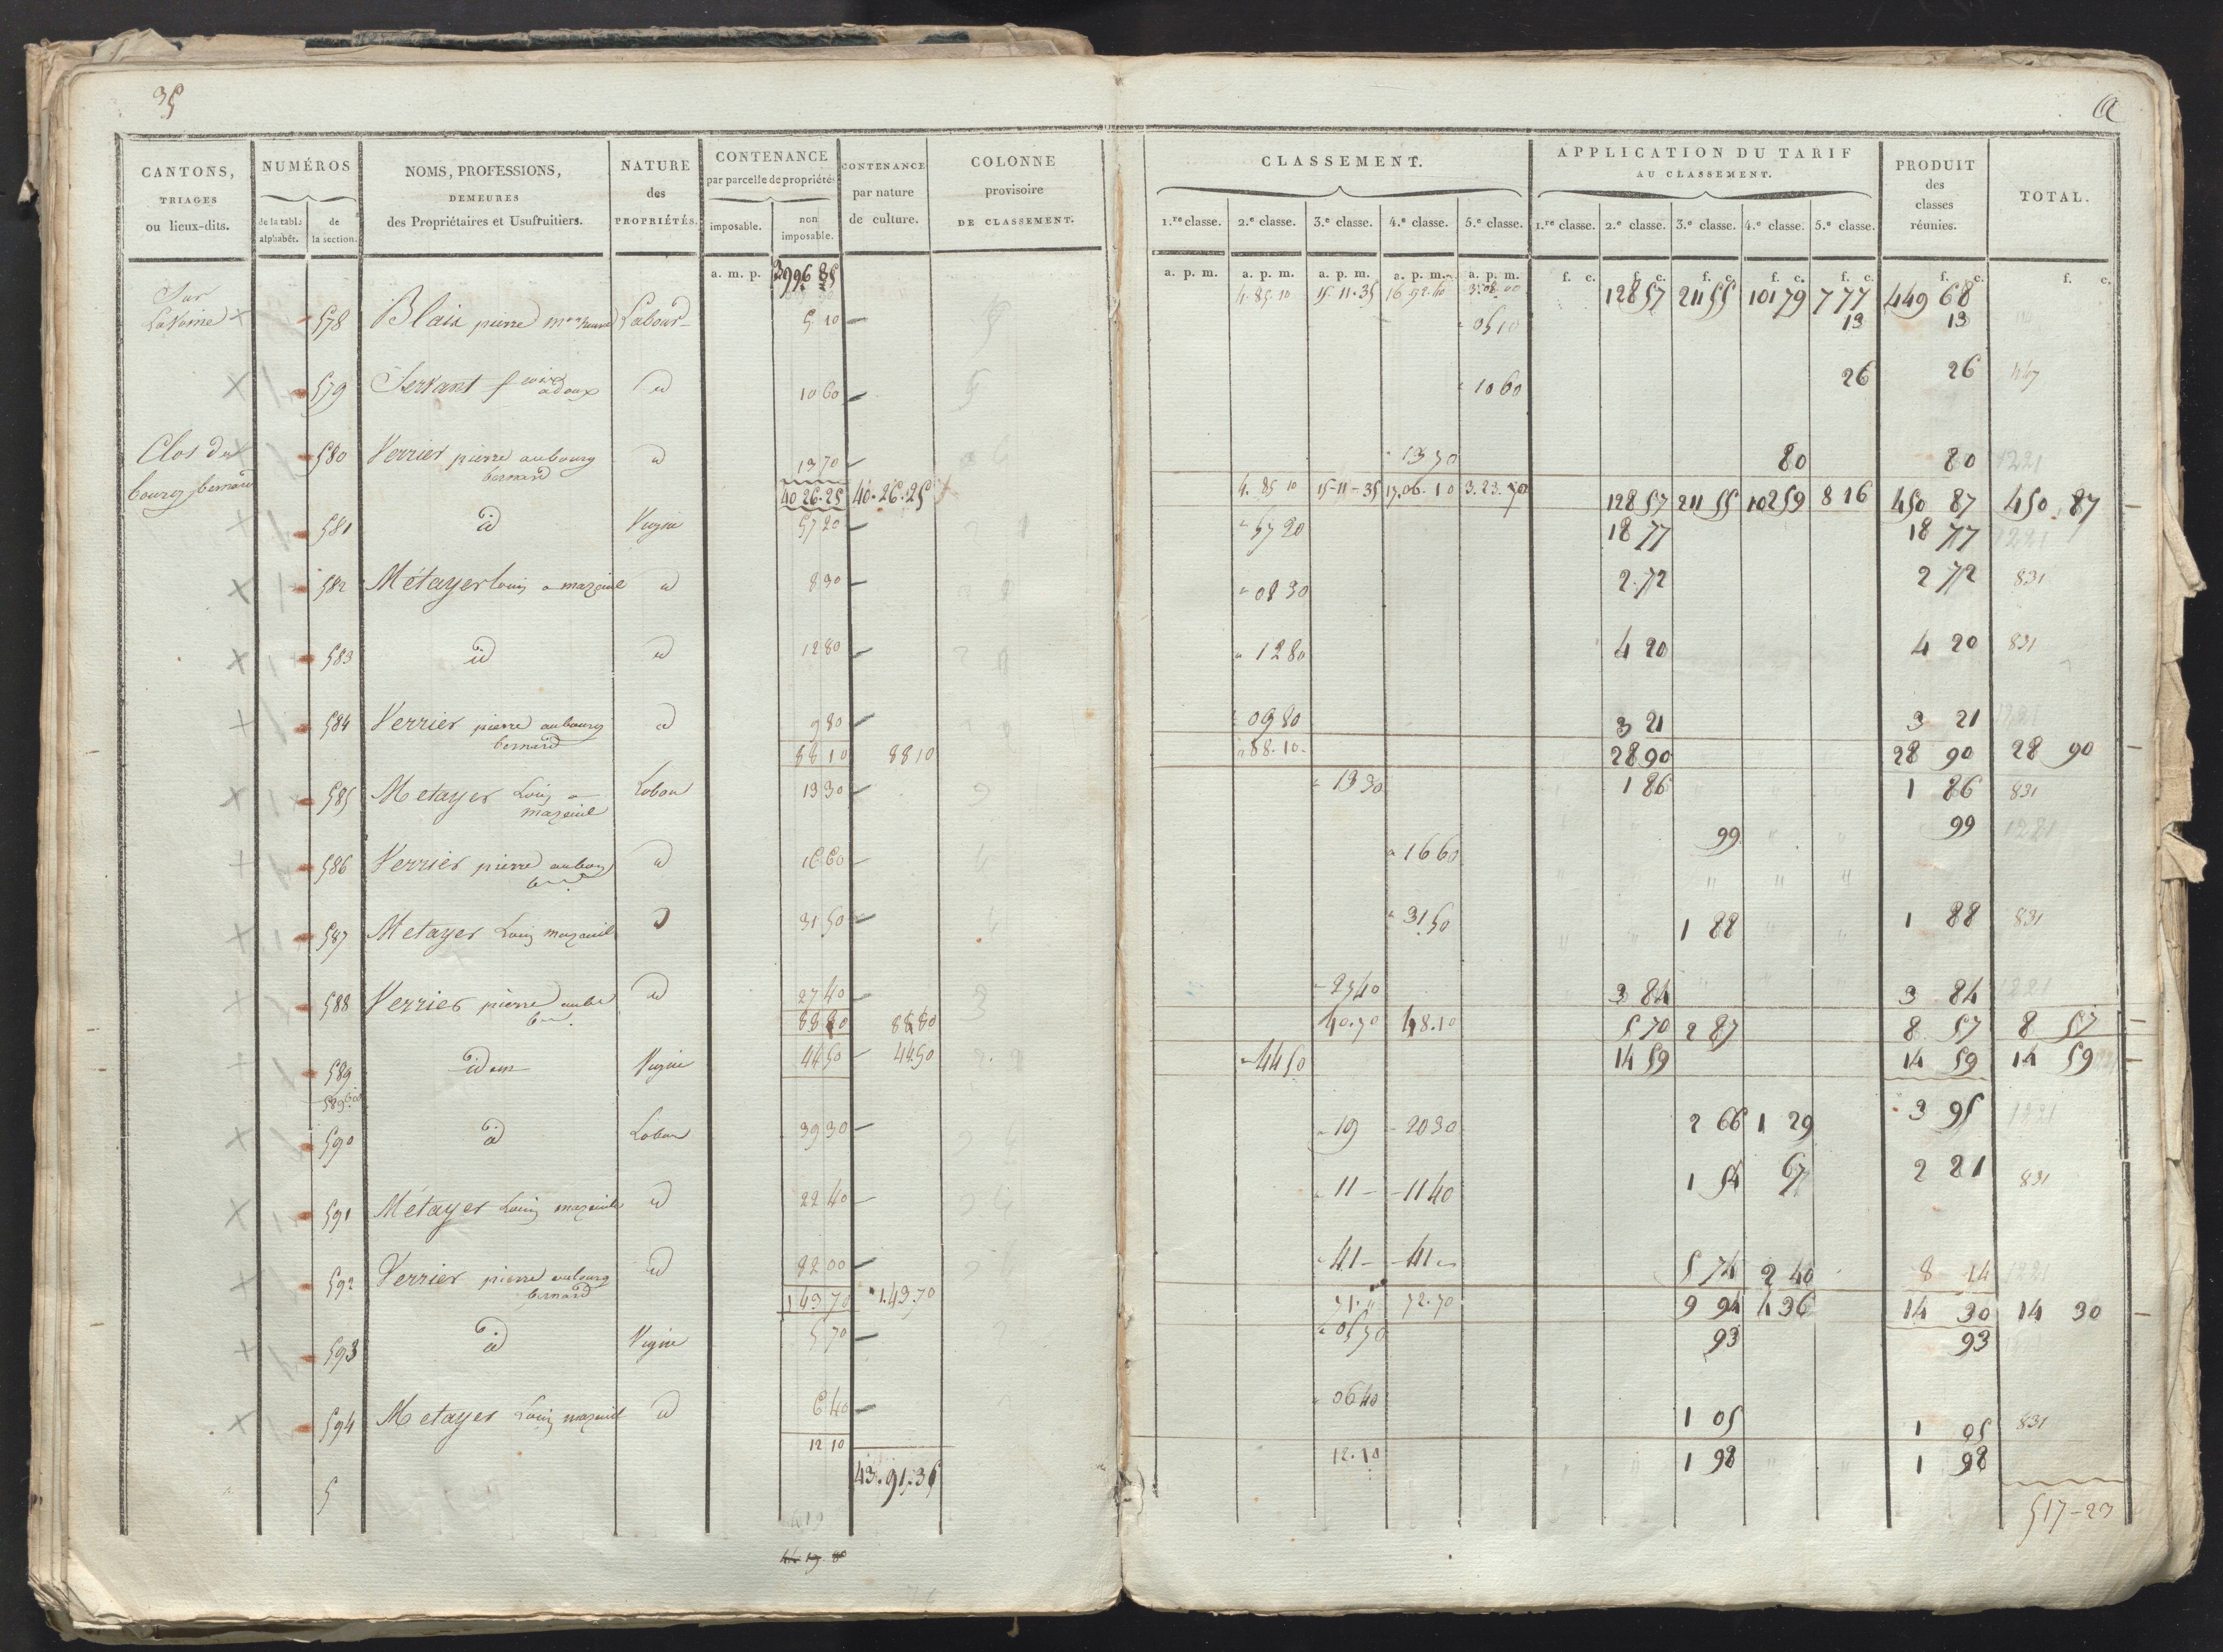 35
a
CANTONS, TRIAGES ou lieux-dits.
NUMÉROS
de la table alphabét.
de la section.
NOMS, PROFESSIONS, DEMEURES des Propriétaires et Usufruitiers.
NATURE des PROPRIÉTÉS.
CONTENANCE par parcelle de propriétés
imposable.
non imposable.
CONTENANCE par nature de culture.
COLONNE provisoire DE CLASSEMENT.
CLASSEMENT.
1.re classe. 2.e classe. 3.e classe. 4.e classe. 5.e classe.
APPLICATION DU TARIF AU CLASSEMENT.
1.re classe. 2.e classe. 3.e classe. 4.e classe. 5.e classe.
PRODUIT des classes réunies.
TOTAL.
a. m. p. 3996 85
a. p. m. a. p. m. a. p. m. a. p. m. a. p. m. f. c. f. c. f. c. f. c. f. c. f. c. f. c.
4. 85. 10 15. 11. 35 16. 92. 40 3. 08. 00 128 57 211 55 101 79 7 77 449 68
Sur
578 Blaix pierre Labour 5 10 05 10 13 13
579 Servant f adoux id 10 60 5 10 60 26 26 467
Clos du
bourg bernard
580 Verrier pierre aubourg bernard id 13 70 13 70 80 80 1221
40 26. 25 40. 26. 25 4. 85 10 15-11-35 17. 06. 10 3. 23. 70 128 57 211 55 102 59 8 16 450 87 450 87
581 id Vigne 57 20 57 20 18 77 18 77 1221
582 Métayer louis a mazeuil id 8 30 08 30 2. 72 2 72 831
583 id id 12 80 12 80 4 20 4 20 831
584 Verrier pierre aubourg bernard id 9 80 09 80 3 21 3 21 1221
88 10 88 10 88. 10 28 90 28 90 28 90
585 Metayer Louis a mazeuil Labou 13 30 13 30 1 86 1 86 831
586 Verrier pierre aubourg id 16 60 16 60 99 99
587 Metayer Louis mazeuil 31 50 31 50 1 88 1 88 831
588 Verrier pierre id 27 40 3 27 40 3 84 3 84 1221
88 80 88 80 40. 70 48. 10 5 70 2 87 8 57 8 57
589 idem Vigne 44 50 44. 50 44 50 14 59 14 59 14 59
589 bis
590 id Labou 39 30 19 20 30 2 66 1 29 3 95 1221
591 Métayer Louis mazeuil id 22 40 11 11 40 1 54 67 2 21 831
592 Verrier pierre aubourg bernard id 82 00 41 41 5 74 2 40 8 14 1221
1 43 70 1. 43. 70 71. " 72. 70 9 94 4 36 14 30 14 30
593 id Vigne 5 70 05 70 93 93
594 Metayer Louis mazeuil id 6 40 06 40 1 05 1 05 831
12 10 12. 10 1 98 1 98
43. 91. 35
5
517-23